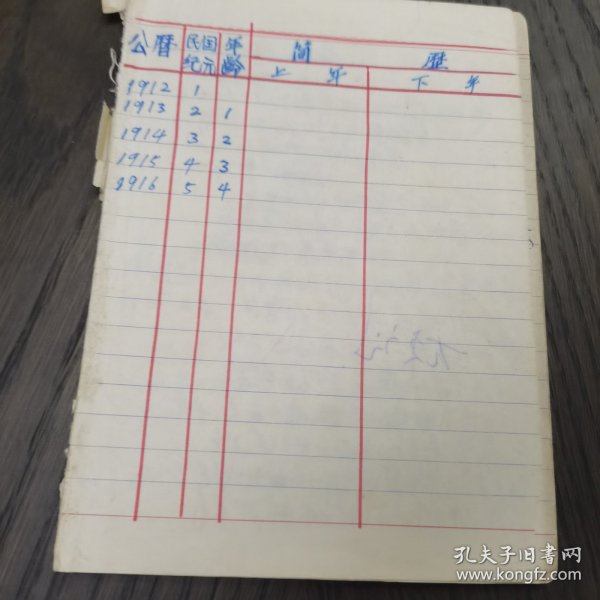 公曆 民国纪元 年龄 简 歷
上 年 下 年
1912 1
1913 2 1
1914 3 2
1915 4 3
1916 5 4
孔夫子旧书网
www.kongfz.com